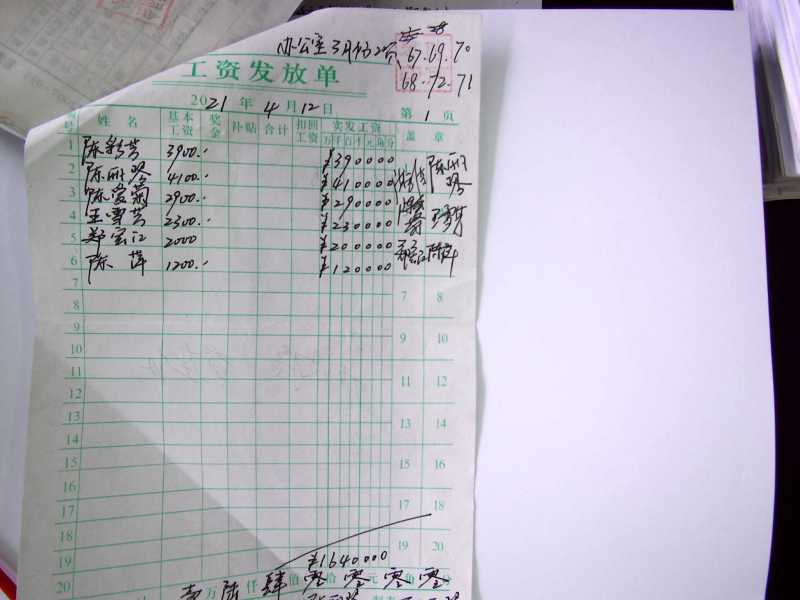 办公室3月份工资
67.69.70
68.72.71
工资发放单
2021年4月12日 第1页
编号 姓名 基本工资 奖金 补贴 合计 扣回工资 实发工资 盖章
万千百十元角分
1 陈彩芳 3900.. ¥390000
2 陈丽琴 4100.. ¥410000 陈丽琴
3 陈爱菊 2900.. ¥290000
4 王雪芳 2300.. ¥230000
5 郑宝江 2000 ¥200000
6 陈萍 1200.. ¥120000 陈萍
7 7 8
8
9 9 10
10
11 11 12
12
13 13 14
14
15 15 16
16
17 17 18
18
19 19 20
¥1640000
20 壹万陆仟肆佰零拾零元零角零分